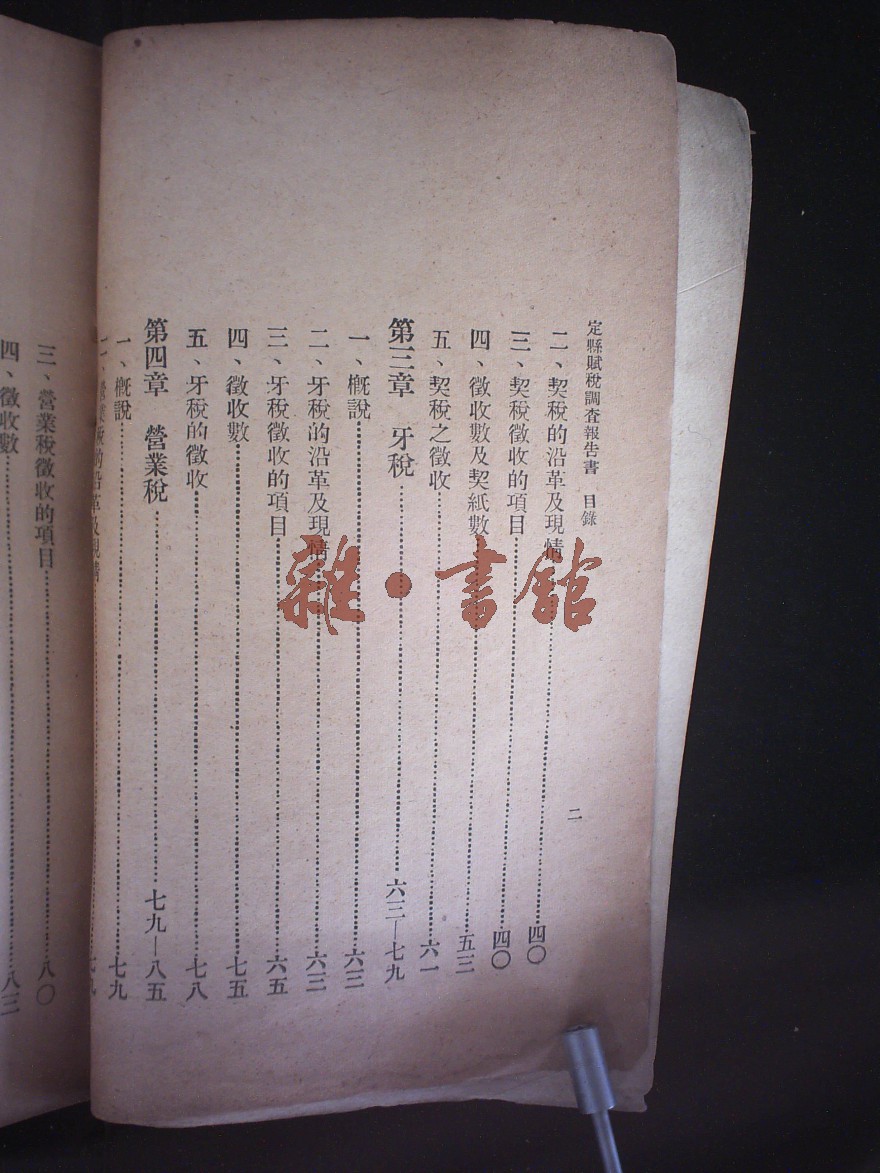 定縣賦稅調查報告書 目錄
二
二、契稅的沿革及現情……四〇
三、契稅徵收的項目……四〇
四、徵收數及契紙數……五三
五、契稅之徵收……六一
第三章 牙稅……六三—七九
一、概說……六三
二、牙稅的沿革及現情……六三
三、牙稅徵收的項目……六五
四、徵收數……七五
五、牙稅的徵收……七八
第四章 營業稅……七九—八五
一、概說……七九
二、營業稅的沿革及現情……七九
三、營業稅徵收的項目……八〇
四、徵收數……八三
雜·書館